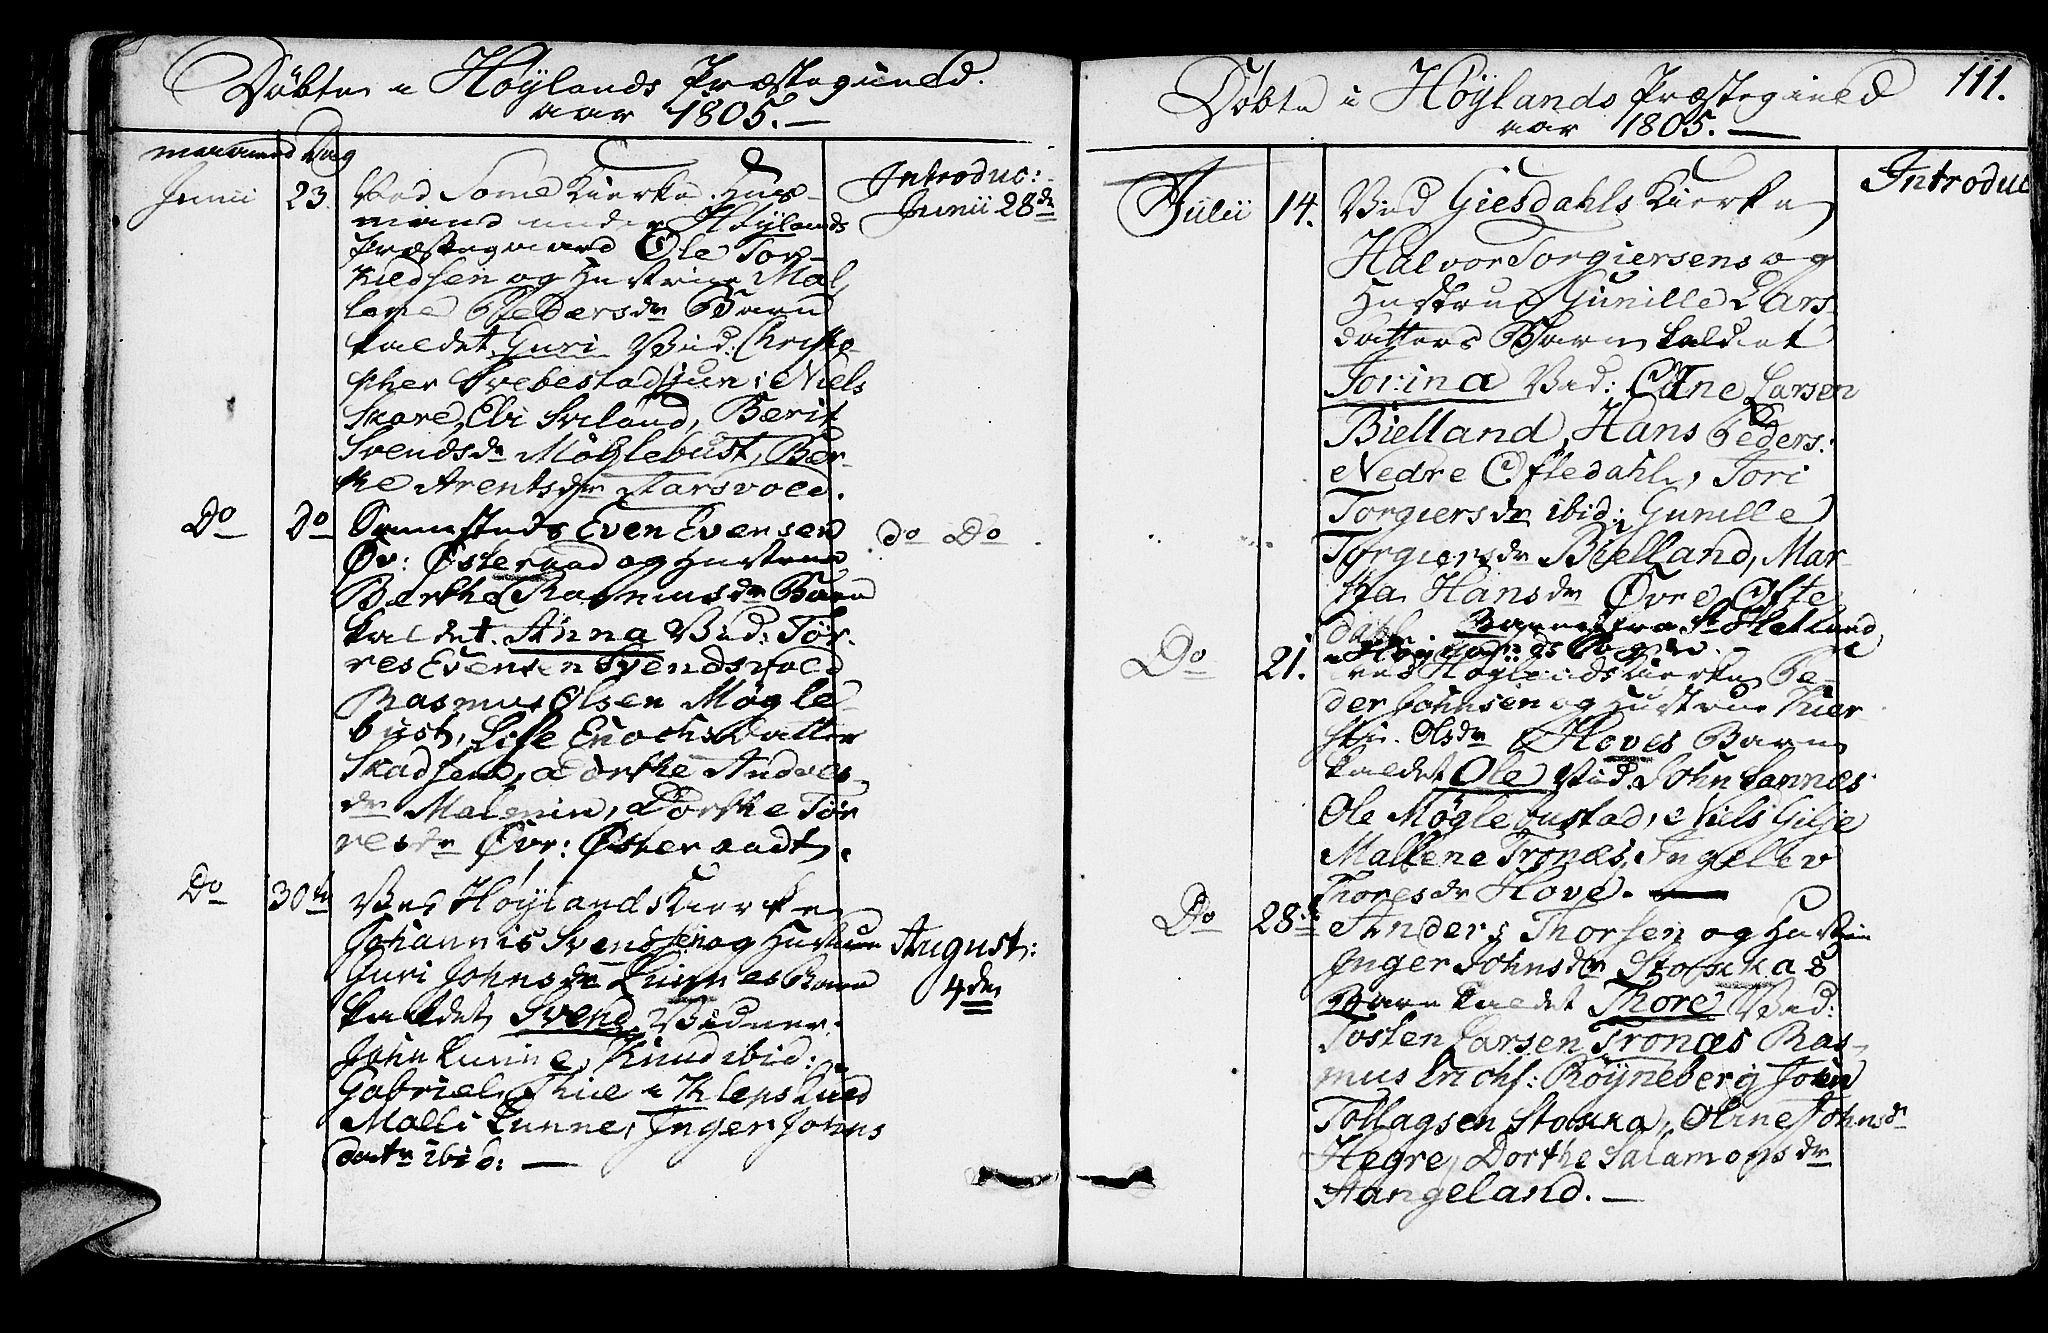 Döbte i Höÿlands Præstegiæld.
aar 1805.—
maaned Dag
Introduc:
Junii 23. Ved Some Kierke Huus-
Junii 28de
mand under Höÿlands
Præstegaard Ole Tor-
kildsen og Hustrue Mal-
lene Pedersdr Barn
kaldet Guri Vid: Christo-
pher Svebestad jun: Niels
Skare, Eli Sviland, Berit
Svendsdr Möglebust, Ber-
the Arentsdr Aarsvold.
Do Do Sammesteds Even Evensen
do Do
Öv: Österaad og Hustrue
Berthe Rasmusdr Barn
kaldet Anna Vid: Tör-
res Evensen Svendsvold
Rasmus Olsen Mögle-
bust, Lisse Enochsdatter
Skadsem, Dorthe Andres-
dr Malmin, Dorthe Tör-
resdr Övr: Österaadt.
Do 30te Ved Höÿlands Kierke
Johannis Svendsen og Hustrue
August:
4de
Guri Johnsdr Lunnes Barn
kaldet Svend. Vidner.
John Lunne, Knud ibid:
Gabriel Thue i Kleps
Malli Lunne, Inger Johns
datr ibid: —
Döbte i Höÿlands Præstegiæld
111.
aar 1805.—
Introduc
Julii 14. Ved Giesdahls Kierke
Halvor Torgiersens og
Hustrue Gunille Lars
datters Barn kaldet
Torina Vid: Ådne Larsen
Bielland, Hans Peders:
Nedre Oftedahl, Tori
Torgiersdr ibid; Gunille
Torgiersdr Bielland, Mar-
tha Hansdr Övre Ofte
dahl. Barnet fra Hetland
Do 21. ved Höÿlands Kierke Pe-
der Johnsen og Hustrue Kier-
sti Olsdr Hoves Barn
kaldet Ole Vid. John Sannes
Ole Möglebustad, Niels Gilje
Mallene Tronæs, Ingellev
Thoresdr Hove. —
Do 28de Anders Thorsen og Hustrue
Inger Johnsdr Stokkas
Barn kaldet Thore Vid:
Tosten Larsen Tronæs Ras-
mus Erichs: Röÿneberg John
Tollagsen Stokka, Oline Johnsdr
Hegre, Dorthe Salamonsdr
Stangeland. —